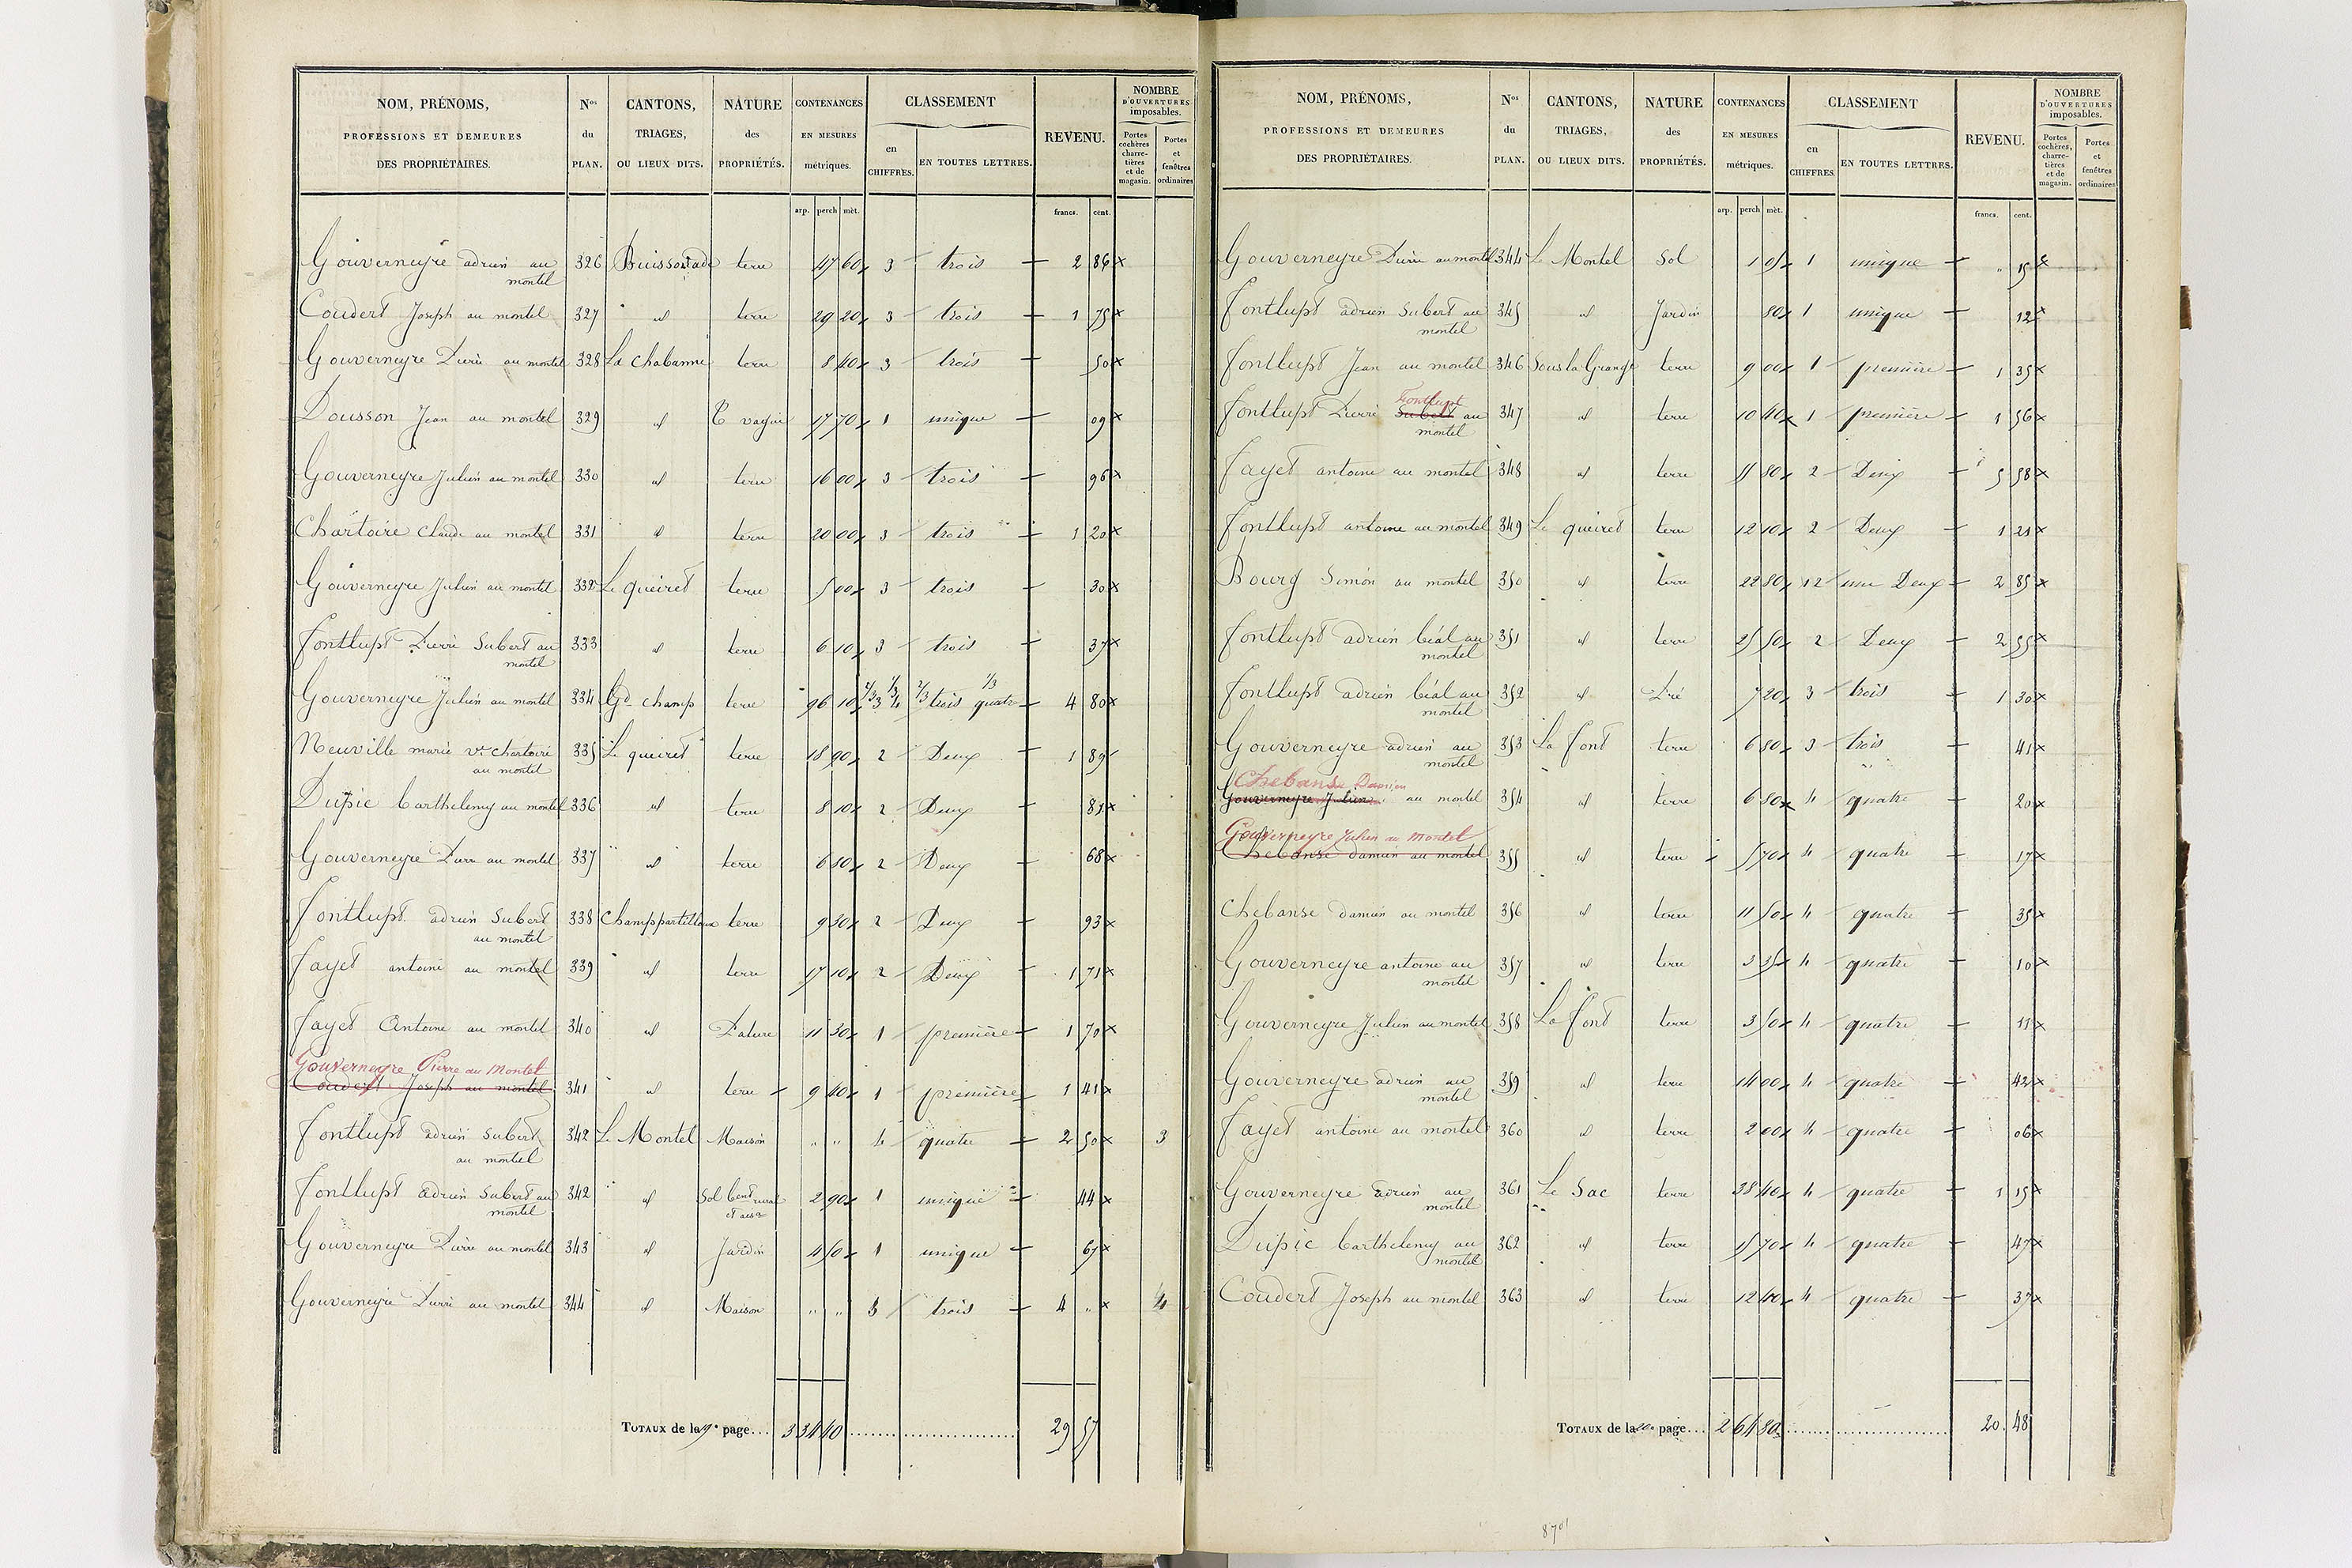 NOM, PRÉNOMS, PROFESSIONS ET DEMEURES DES PROPRIÉTAIRES. Nos du PLAN. CANTONS, TRIAGES, OU LIEUX DITS. NATURE des PROPRIÉTÉS. CONTENANCES EN MESURES métriques. CLASSEMENT en CHIFFRES. EN TOUTES LETTRES. REVENU. NOMBRE D'OUVERTURES imposables. Portes cochères, charretières et de magasin. Portes et fenêtres ordinaires
arp. perch mèt. francs. cent.
Gouverneyre adrien au montel 326 terre 47 60 3 trois 2 86
Coudert Joseph au montel 327 id terre 29 20 3 trois 1 75
Gouverneyre Pierre au montel 328 La chabanne terre 8 40 3 trois 50
Dousson Jean au montel 329 id T vague 17 70 1 unique 09
Gouverneyre Julien au montel 330 id terre 16 00 3 trois 96
Chartoire Claude au montel 331 id terre 20 00 3 trois 1 20
Gouverneyre Julien au montel 332 Le queiret terre 5 00 3 trois 30
Fontlupt Pierre Subert au montel 333 id terre 6 10 3 trois 37
Gouverneyre Julien au montel 334 Gd champ terre 96 10 2/3 3 1/3 4 2/3 trois 1/3 quatre 4 80
Neuville marie ve chartoire au montel 335 Le queiret terre 18 90 2 Deux 1 89
Dupic barthelemy au montel 336 id terre 8 10 2 Deux 81
Gouverneyre Pierre au montel 337 id terre 6 80 2 Deux 68
Fontlupt adrien Subert au montel 338 terre 9 30 2 Deux 93
Fayet antoine au montel 339 id terre 17 10 2 Deux 1 71
Fayet Antoine au montel 340 id Pature 11 30 1 première 1 70
Gouverneyre Pierre au Montel
Coudert Joseph au montel 341 id terre 9 40 1 première 1 41
Fontlupt adrien Subert au montel 342 Le Montel Maison " " 4 quatre 2 50 3
Fontlupt adrien Subert au montel 342 id Sol bent rural 2 90 1 unique 44
Gouverneyre Pierre au montel 343 id Jardin 4 50 1 unique 67
Gouverneyre Pierre au montel 344 id Maison " " 3 trois 4 " 4
TOTAUX de la 19e page... 3 34 40 29 57
NOM, PRÉNOMS, PROFESSIONS ET DEMEURES DES PROPRIÉTAIRES. Nos du PLAN. CANTONS, TRIAGES, OU LIEUX DITS. NATURE des PROPRIÉTÉS. CONTENANCES EN MESURES métriques. CLASSEMENT en CHIFFRES. EN TOUTES LETTRES. REVENU. NOMBRE D'OUVERTURES imposables. Portes cochères, charretières et de magasin. Portes et fenêtres ordinaires
arp. perch mèt. francs. cent.
Gouverneyre Pierre au montel 344 Le Montel Sol 1 05 1 unique " 15
Fontlupt adrien Subert au montel 345 id Jardin 80 1 unique 12
Fontlupt Jean au montel 346 Sous la Grange terre 9 00 1 première 1 35
Fontlupt Pierre Subert Fontlupt au montel 347 id terre 10 40 1 première 1 56
Fayet antoine au montel 348 id terre 55 80 2 Deux 5 58
Fontlupt antoine au montel 349 Le queiret terre 12 10 2 Deux 1 21
Bourg Simon au montel 350 id terre 22 80 1 2 une Deux 2 85
Fontlupt adrien béal au montel 351 id terre 25 50 2 Deux 2 55
Fontlupt adrien béal au montel 352 id Pré 7 20 3 trois 1 30
Gouverneyre adrien au montel 353 La font terre 6 80 3 trois 41
Chebanse Damien
Gouverneyre Julien au montel 354 id terre 6 80 4 quatre 20
Gouverneyre Julien au Montel
Chebanse damien au montel 355 id terre 5 70 4 quatre 17
Chebanse damien au montel 356 id terre 11 50 4 quatre 35
Gouverneyre antoine au montel 357 id terre 3 35 4 quatre 10
Gouverneyre Julien au montel 358 La font terre 3 50 4 quatre 11
Gouverneyre adrien au montel 359 id terre 14 00 4 quatre 42
Fayet antoine au montel 360 id terre 2 00 4 quatre 06
Gouverneyre adrien au montel 361 Le Sac terre 38 40 4 quatre 1 15
Dupic barthelemy au montel 362 id terre 15 70 4 quatre 47
Coudert Joseph au montel 363 id terre 12 40 4 quatre 37
TOTAUX de la 20e page... 2 64 80 20 48